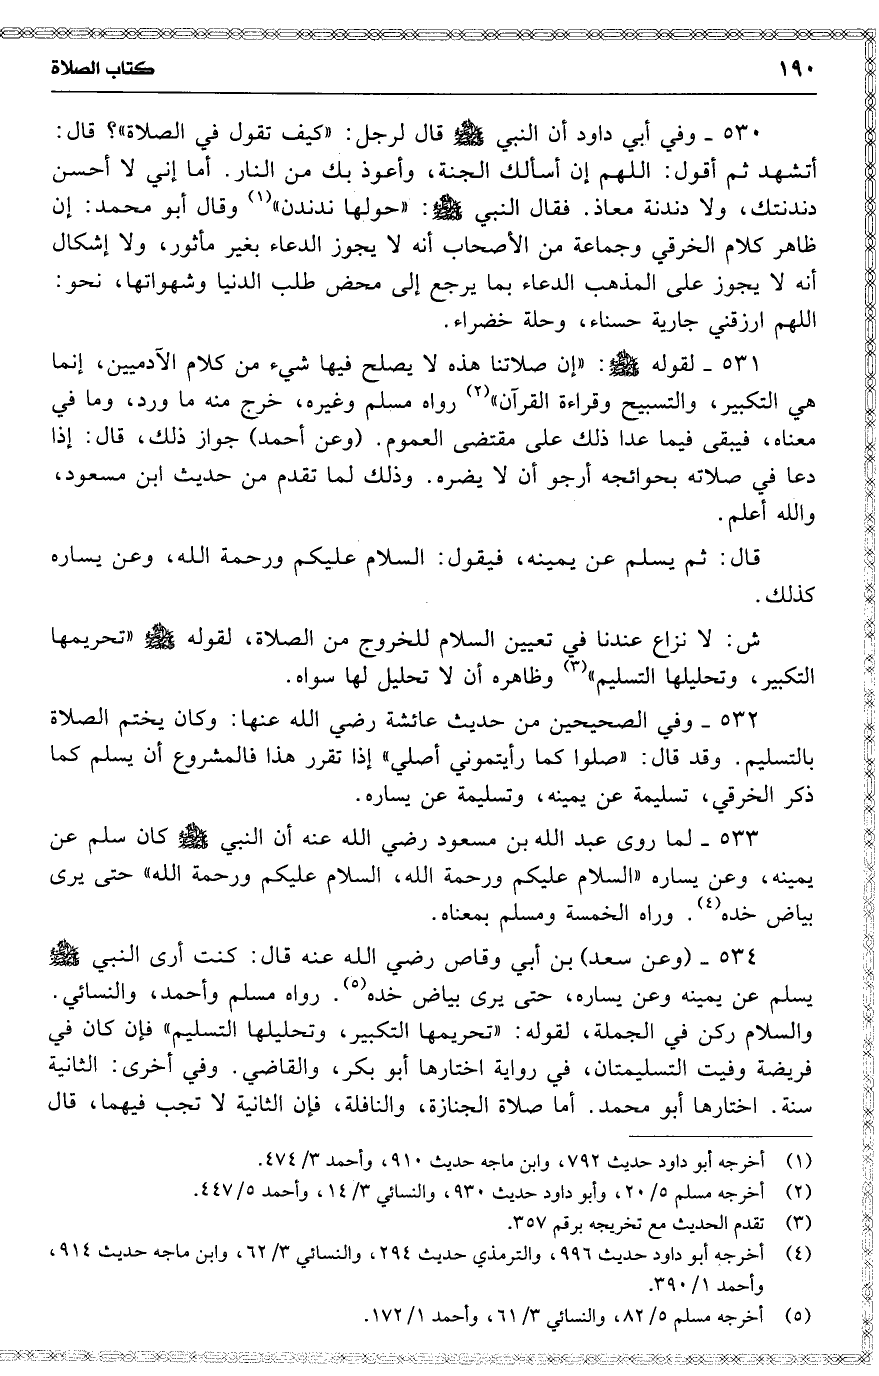 ١٩٠ كتاب الصلاة
٥٣٠ ـ وفي أبي داود أن النبي ﷺ قال لرجل: «كيف تقول في الصلاة»؟ قال:
أتشهد ثم أقول: اللهم إن أسألك الجنة، وأعوذ بك من النار. أما إني لا أحسن
دندنتك، ولا دندنة معاذ. فقال النبي ﷺ: «حولها ندندن»(١) وقال أبو محمد: إن
ظاهر كلام الخرقي وجماعة من الأصحاب أنه لا يجوز الدعاء بغير مأثور، ولا إشكال
أنه لا يجوز على المذهب الدعاء بما يرجع إلى محض طلب الدنيا وشهواتها، نحو:
اللهم ارزقني جارية حسناء، وحلة خضراء.
٥٣١ ـ لقوله ﷺ: «إن صلاتنا هذه لا يصلح فيها شيء من كلام الآدميين، إنما
هي التكبير، والتسبيح وقراءة القرآن»(٢) رواه مسلم وغيره، خرج منه ما ورد، وما في
معناه، فيبقى فيما عدا ذلك على مقتضى العموم. (وعن أحمد) جواز ذلك، قال: إذا
دعا في صلاته بحوائجه أرجو أن لا يضره. وذلك لما تقدم من حديث ابن مسعود،
والله أعلم.
قال: ثم يسلم عن يمينه، فيقول: السلام عليكم ورحمة الله، وعن يساره
كذلك.
ش: لا نزاع عندنا في تعيين السلام للخروج من الصلاة، لقوله ﷺ «تحريمها
التكبير، وتحليلها التسليم»(٣) وظاهره أن لا تحليل لها سواه.
٥٣٢ ـ وفي الصحيحين من حديث عائشة رضي الله عنها: وكان يختم الصلاة
بالتسليم. وقد قال: «صلوا كما رأيتموني أصلي» إذا تقرر هذا فالمشروع أن يسلم كما
ذكر الخرقي، تسليمة عن يمينه، وتسليمة عن يساره.
٥٣٣ ـ لما روى عبد الله بن مسعود رضي الله عنه أن النبي ﷺ كان سلم عن
يمينه، وعن يساره «السلام عليكم ورحمة الله، السلام عليكم ورحمة الله» حتى يرى
بياض خده(٤). وراه الخمسة ومسلم بمعناه.
٥٣٤ ـ (وعن سعد) بن أبي وقاص رضي الله عنه قال: كنت أرى النبي ﷺ
يسلم عن يمينه وعن يساره، حتى يرى بياض خده(٥). رواه مسلم وأحمد، والنسائي.
والسلام ركن في الجملة، لقوله: «تحريمها التكبير، وتحليلها التسليم» فإن كان في
فريضة وفيت التسليمتان، في رواية اختارها أبو بكر، والقاضي. وفي أخرى: الثانية
سنة. اختارها أبو محمد. أما صلاة الجنازة، والنافلة، فإن الثانية لا تجب فيهما، قال
(١) أخرجه أبو داود حديث ٧٩٢، وابن ماجه حديث ٩١٠، وأحمد ٣/ ٤٧٤.
(٢) أخرجه مسلم ٥/ ٢٠، وأبو داود حديث ٩٣٠، والنسائي ٣/ ١٤، وأحمد ٥/ ٤٤٧.
(٣) تقدم الحديث مع تخريجه برقم ٣٥٧.
(٤) أخرجه أبو داود حديث ٩٩٦، والترمذي حديث ٢٩٤، والنسائي ٣/ ٦٢، وابن ماجه حديث ٩١٤،
وأحمد ١/ ٣٩٠.
(٥) أخرجه مسلم ٥/ ٨٢، والنسائي ٣/ ٦١، وأحمد ١/ ١٧٢.